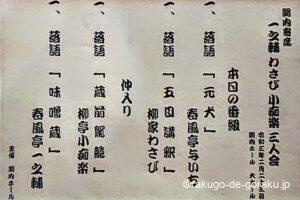 関内寄席
一之輔 わさび 小痴楽 三人会
令和三年二月二十三日
関内ホール 大ホール
本日の番組
一、落語「元犬」
春風亭与いち
一、落語「五目講釈」
柳家わさび
仲入り
一、落語「蔵前駕籠」
柳亭小痴楽
一、落語「味噌蔵」
春風亭一之輔
主催 関内ホール
@rakugo-de-goraku.jp